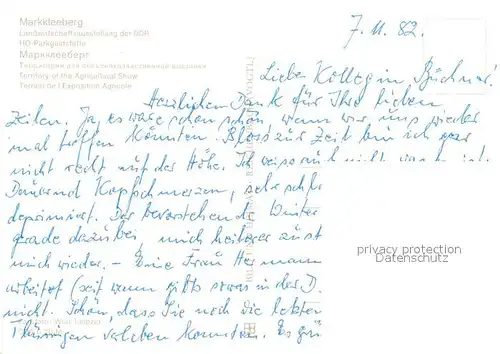 Markkleeberg
Landwirtschaftsausstellung der DDR
HO-Parkgaststätte
Маркклееберг
Территория для сельскохозяйственной выставки
Territory of the Agricultural Show
Terrain de l'Exposition Agricole
7. 11. 82.
Liebe Kollegin Büchner!
Herzlichen Dank für Ihre lieben
Zeilen. Ja, es wäre schon schön, wenn wir uns wieder
mal treffen könnten. Bloss zur Zeit bin ich gar
nicht recht auf der Höhe. Ich weiss nicht
Dauernd Kopfschmerzen, sehr
deprimiert. Der bevorstehende Winter
gerade dazu bei, mich heiterer zu
mich wieder. – Eine Frau Hermann
arbeitet (seit wann gibts sowas in der D.
nicht. Schön, dass Sie noch die letzten
Thüringen
privacy protection
Datenschutz